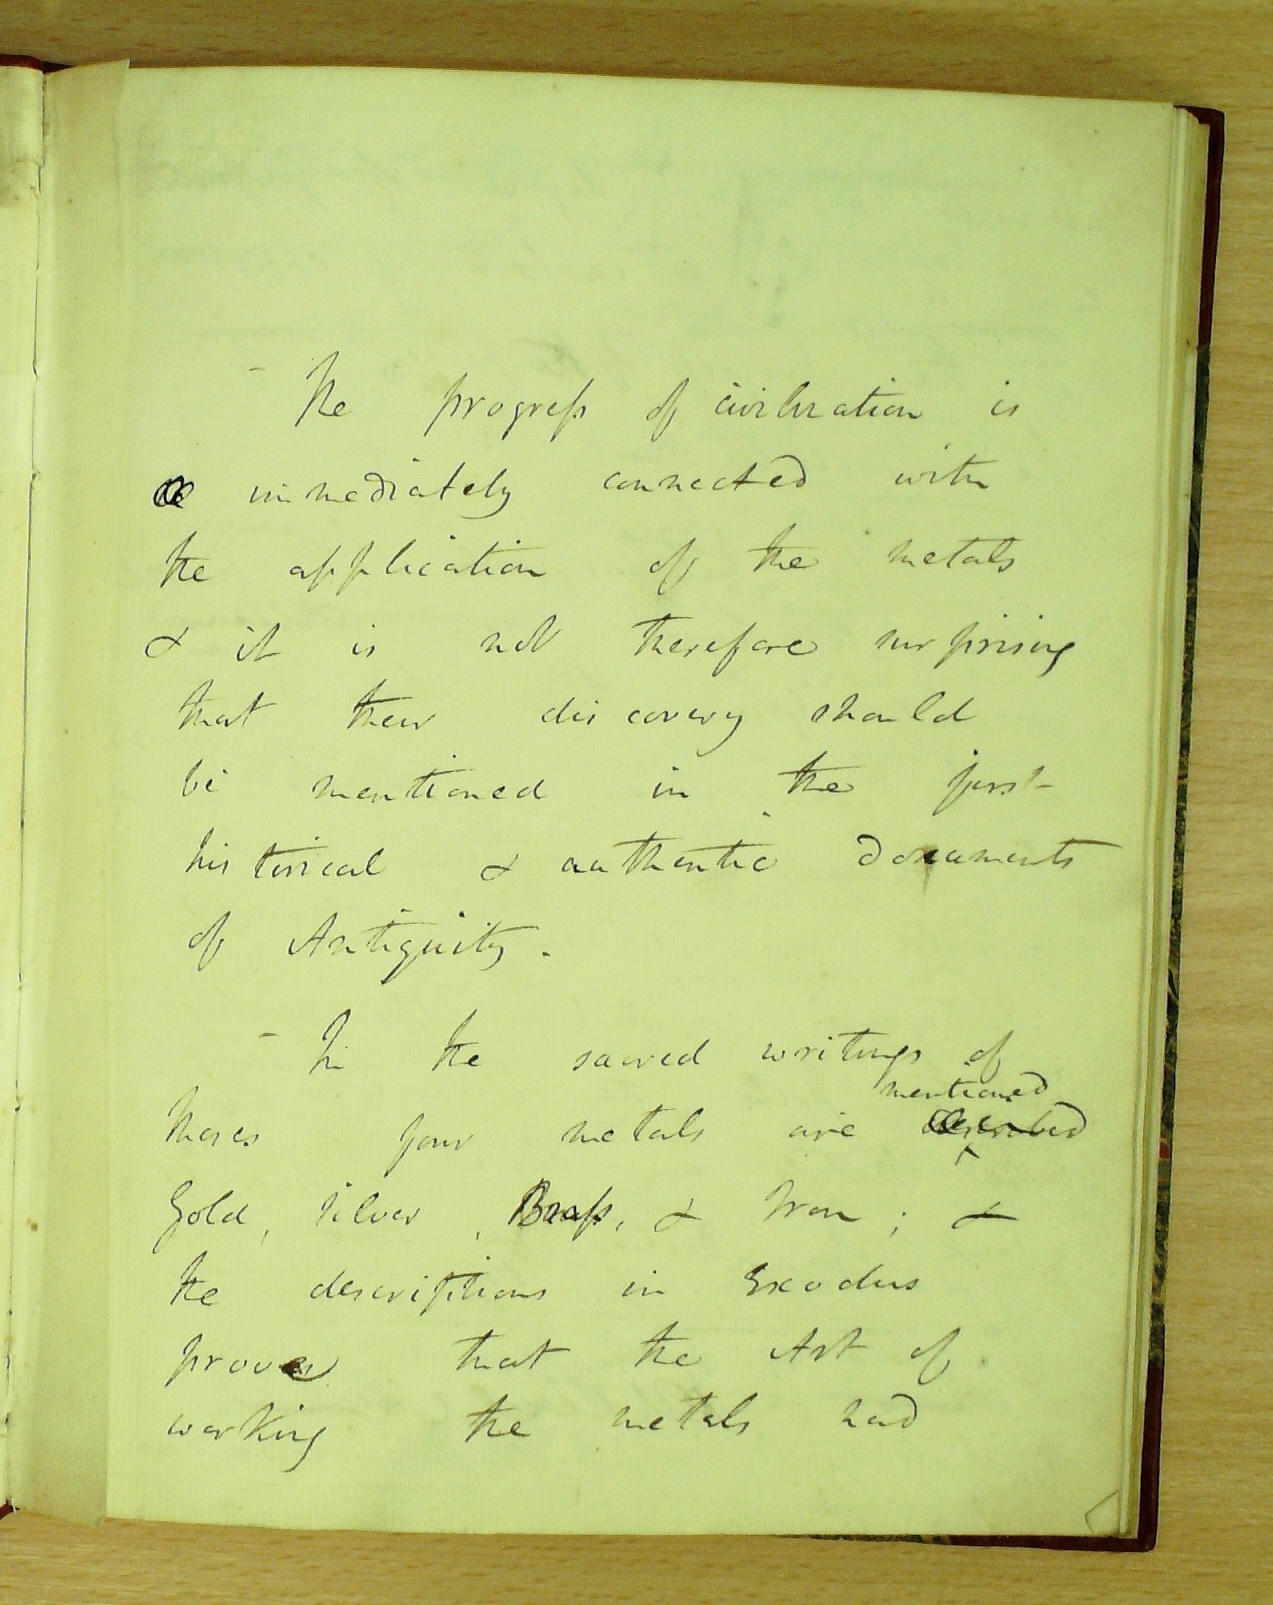 - The progress of civilization is
immediately connected with
the application of the metals
& it is not therefore surprising
that their discovery should
be mentioned in the first
historical & authentic documents
of Antiquity. -
- In the sacred writings of
mentioned
Moses four metals are described
Gold, silver, Brass, & Iron; &
the descriptions in Exodus
prove that the Art of
working the metals had